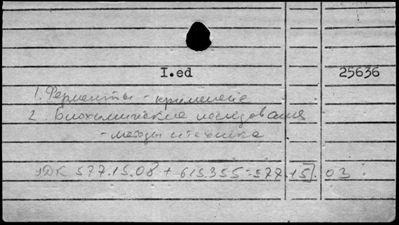 I.ed 25636
1. Ферменты - применение
2. Биохимические исследования
- методы и техника
УДК 577.15.08 + 615.355:577.15].03